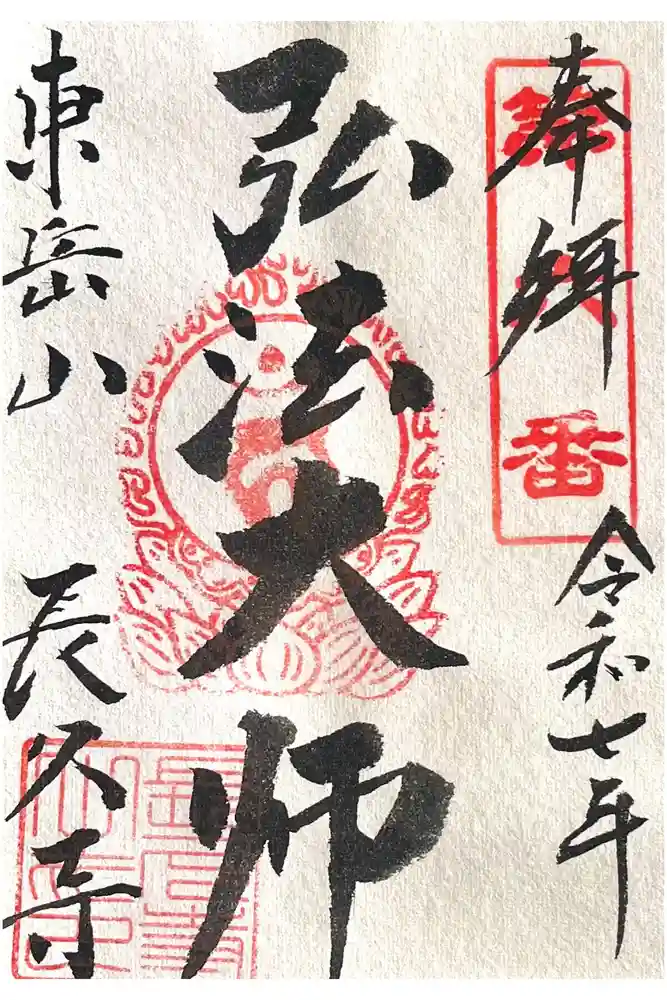 奉拝
令和七年
弘法大师
東岳山
長久寺
番